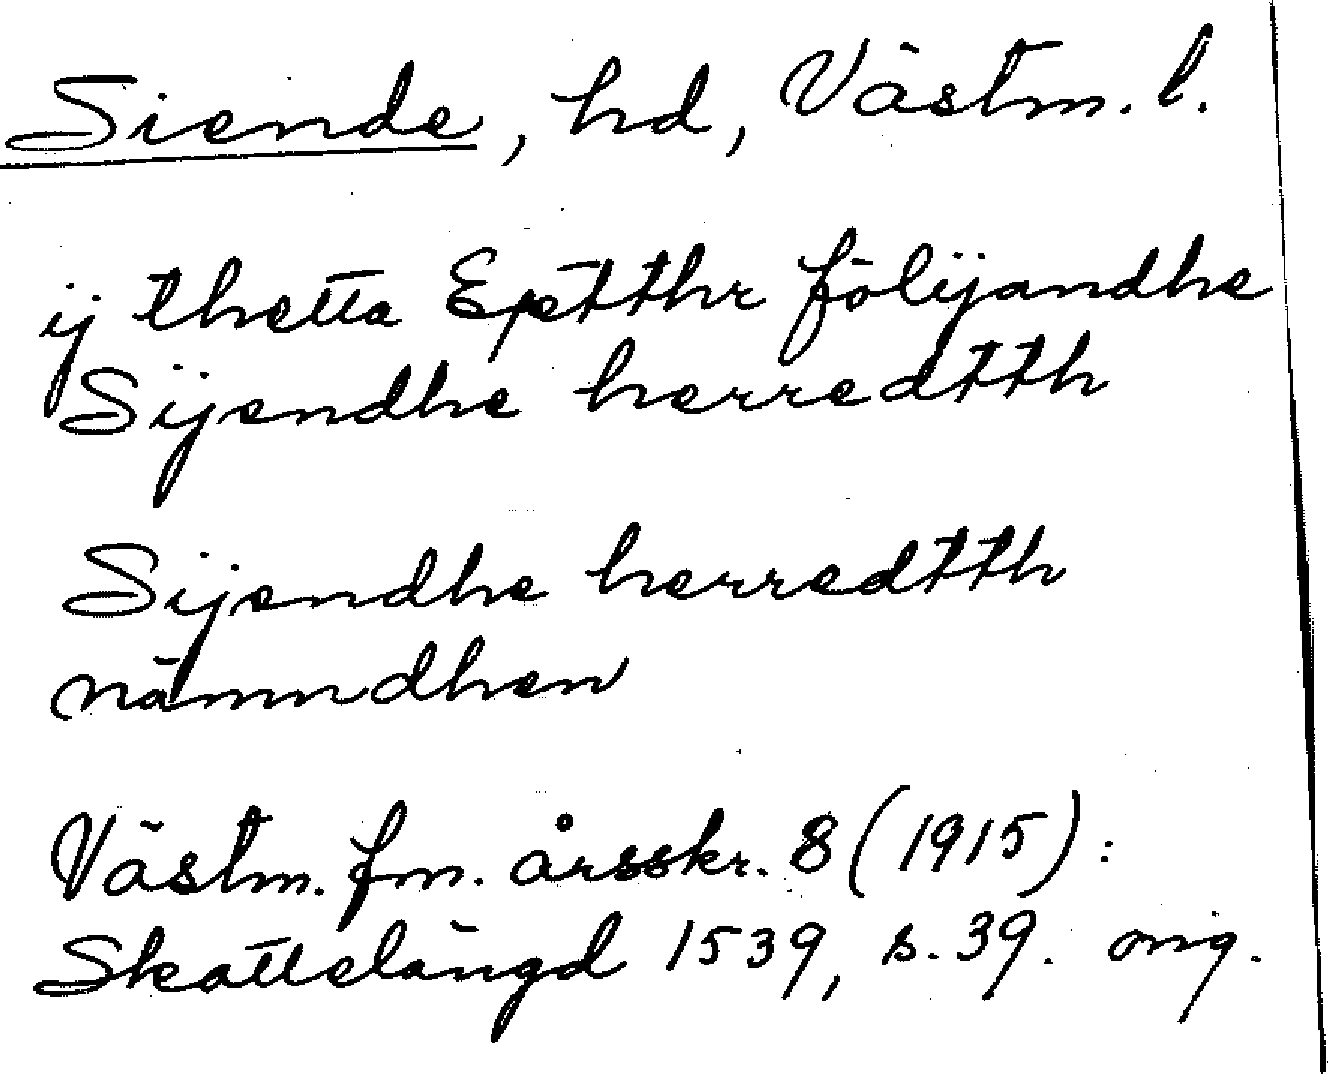 Siende, hd, Västm. l.
ij thetta Eptthr fölijandhe
Sijendhe herredtth
Sijendhe herredtth
nämndhen
Västm. fm. årsskr. 8 (1915):
Skattelängd 1539, s. 39. orig.